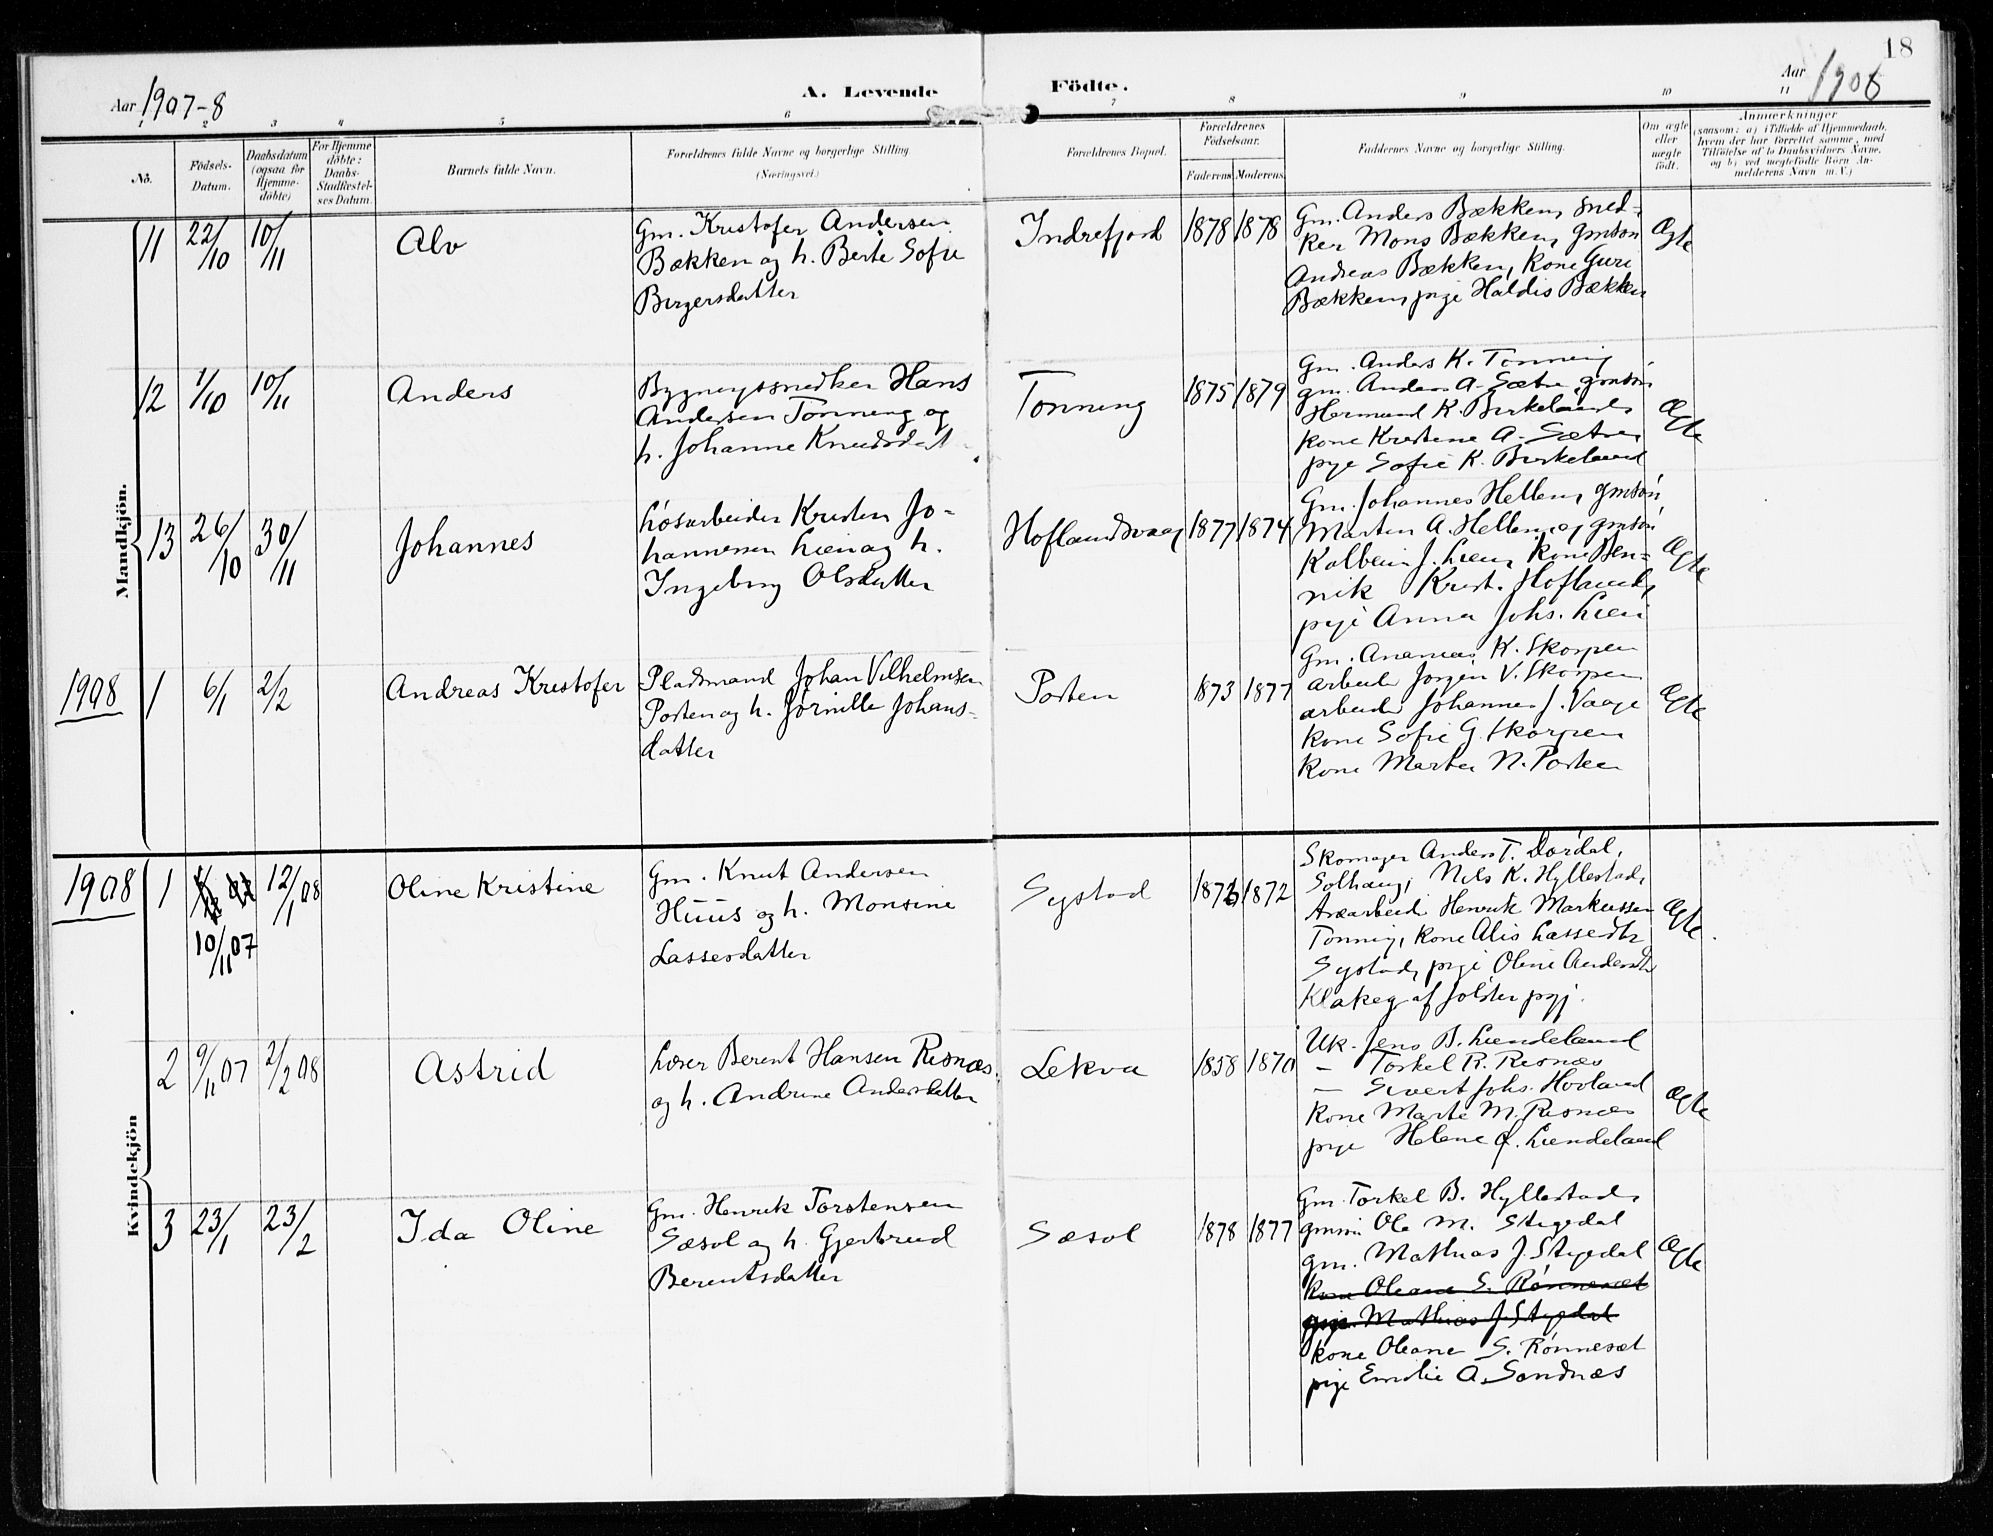 18
Aar 1907-8
A. Levende
Födte.
Aar 1908
1 2 3 4 5 6 7 8 9 10 11
No.
Födsels-
Datum.
Daabsdatum
(ogsaa for
Hjemme-
döbte)
For Hjemme
döbte:
Daabs-
Stadfæstel-
ses Datum.
Barnets fulde Navn.
Forældrenes fulde Navne og borgerlige Stilling
(Næringsvei.)
Forældrenes Bopæl.
Forældrenes
Födselsaar.
Faderens
Moderens
Faddernes Navne og borgerlige Stilling.
Om ægte
eller
uægte
födt.
Anmerkninger
(saasom: a) i Tilfælde af Hjemmedaab,
hvem der har forrettet samme, med
Tilföielse af to Daabsvidners Navne,
og b) ved uegtefödte Börn An-
melderens Navn m. V.)
Mandkjön.
11 22/10 10/11 Alv
Gm. Kristofer Andersen
Bækken og h. Berte Sofie
Birgersdatter
Indrefjord 1878 1878
Gm. Anders Bækken, sned-
ker Mons Bækken, gmsön
Andreas Bækken, kone Guri
Bækken, pige Haldis Bækken
Ægte
12 1/10 10/11 Anders
Bygningssnedker Hans
Andersen Tonning og
h. Johanne Knudsdat
Tonning 1875 1879
Gm. Anders K. Tonning
gm. Anders A. Sætre gmsön
Hermund K. Birkeland
kone Kristene A. Sætre
pige Sofie K. Birkeland
Ægte
13 26/10 30/11 Johannes
Løsarbeider Kristen Jo-
hannesen Lien og h.
Ingeborg Olsdatter
Hoflandsvaag 1877 1874
Gm. Johannes Hellem, gmsön
Martin A. Hellem og gmsön
Kolbein J. Lien, kone Hen-
rik Krist. Hofland,
pige Anna Johs. Lien
Ægte
1908 1 6/1 2/2 Andreas Kristofer
Pladsmand Johan Vilhelmsen
Porten og h. Jørnille Johans-
datter
Porten 1873 1877
Gm. Ananias K. Skorpen
arbeid Jørgen V. Skorpen
arbeid Johannes J. Vaage
kone Sofie G. Skorpen
kone Marta N. Porten
Ægte
Kvindekjön
1908 1 10/11 07 12/1 08 Oline Kristine
Gm. Knut Andersen
Huus og h. Monsine
Lassesdatter
Systad 1873 1872
Skomager Anders T. Dørdal,
Solhaug, Nils K. Hyllestad,
Henrik Markussen
Tonning, kone Alis Lassedtr
Systad, pige Oline Andersdtr
Klakeg af Jölster pgj.
Ægte.
2 9/11 07 2/2 08 Astrid
Lærer Berent Hansen Risnæs
og h. Andrine Andersdatter
Lekva 1858 1870
Uk. Jens B. Lundeland
— Torkel R. Risnæs
— Sivert Johs. Hovland
kone Marte M. Risnæs
pige Helene J. Lundeland
Ægte
3 23/1 23/2 Ida Oline
Gm. Henrik Torstensen
Sæsol og h. Gjertrud
Berentsdatter
Sæsol 1878 1877
Gm. Torkel B. Hyllestad,
gmsön Ole M. Stigedal
gm. Mathias J. Stigedal
kone Oleane S. Rønneset
pige Mathias J. Stigedal
kone Oleane S. Rønneset
pige Emilie A. Sandnæs
Ægte